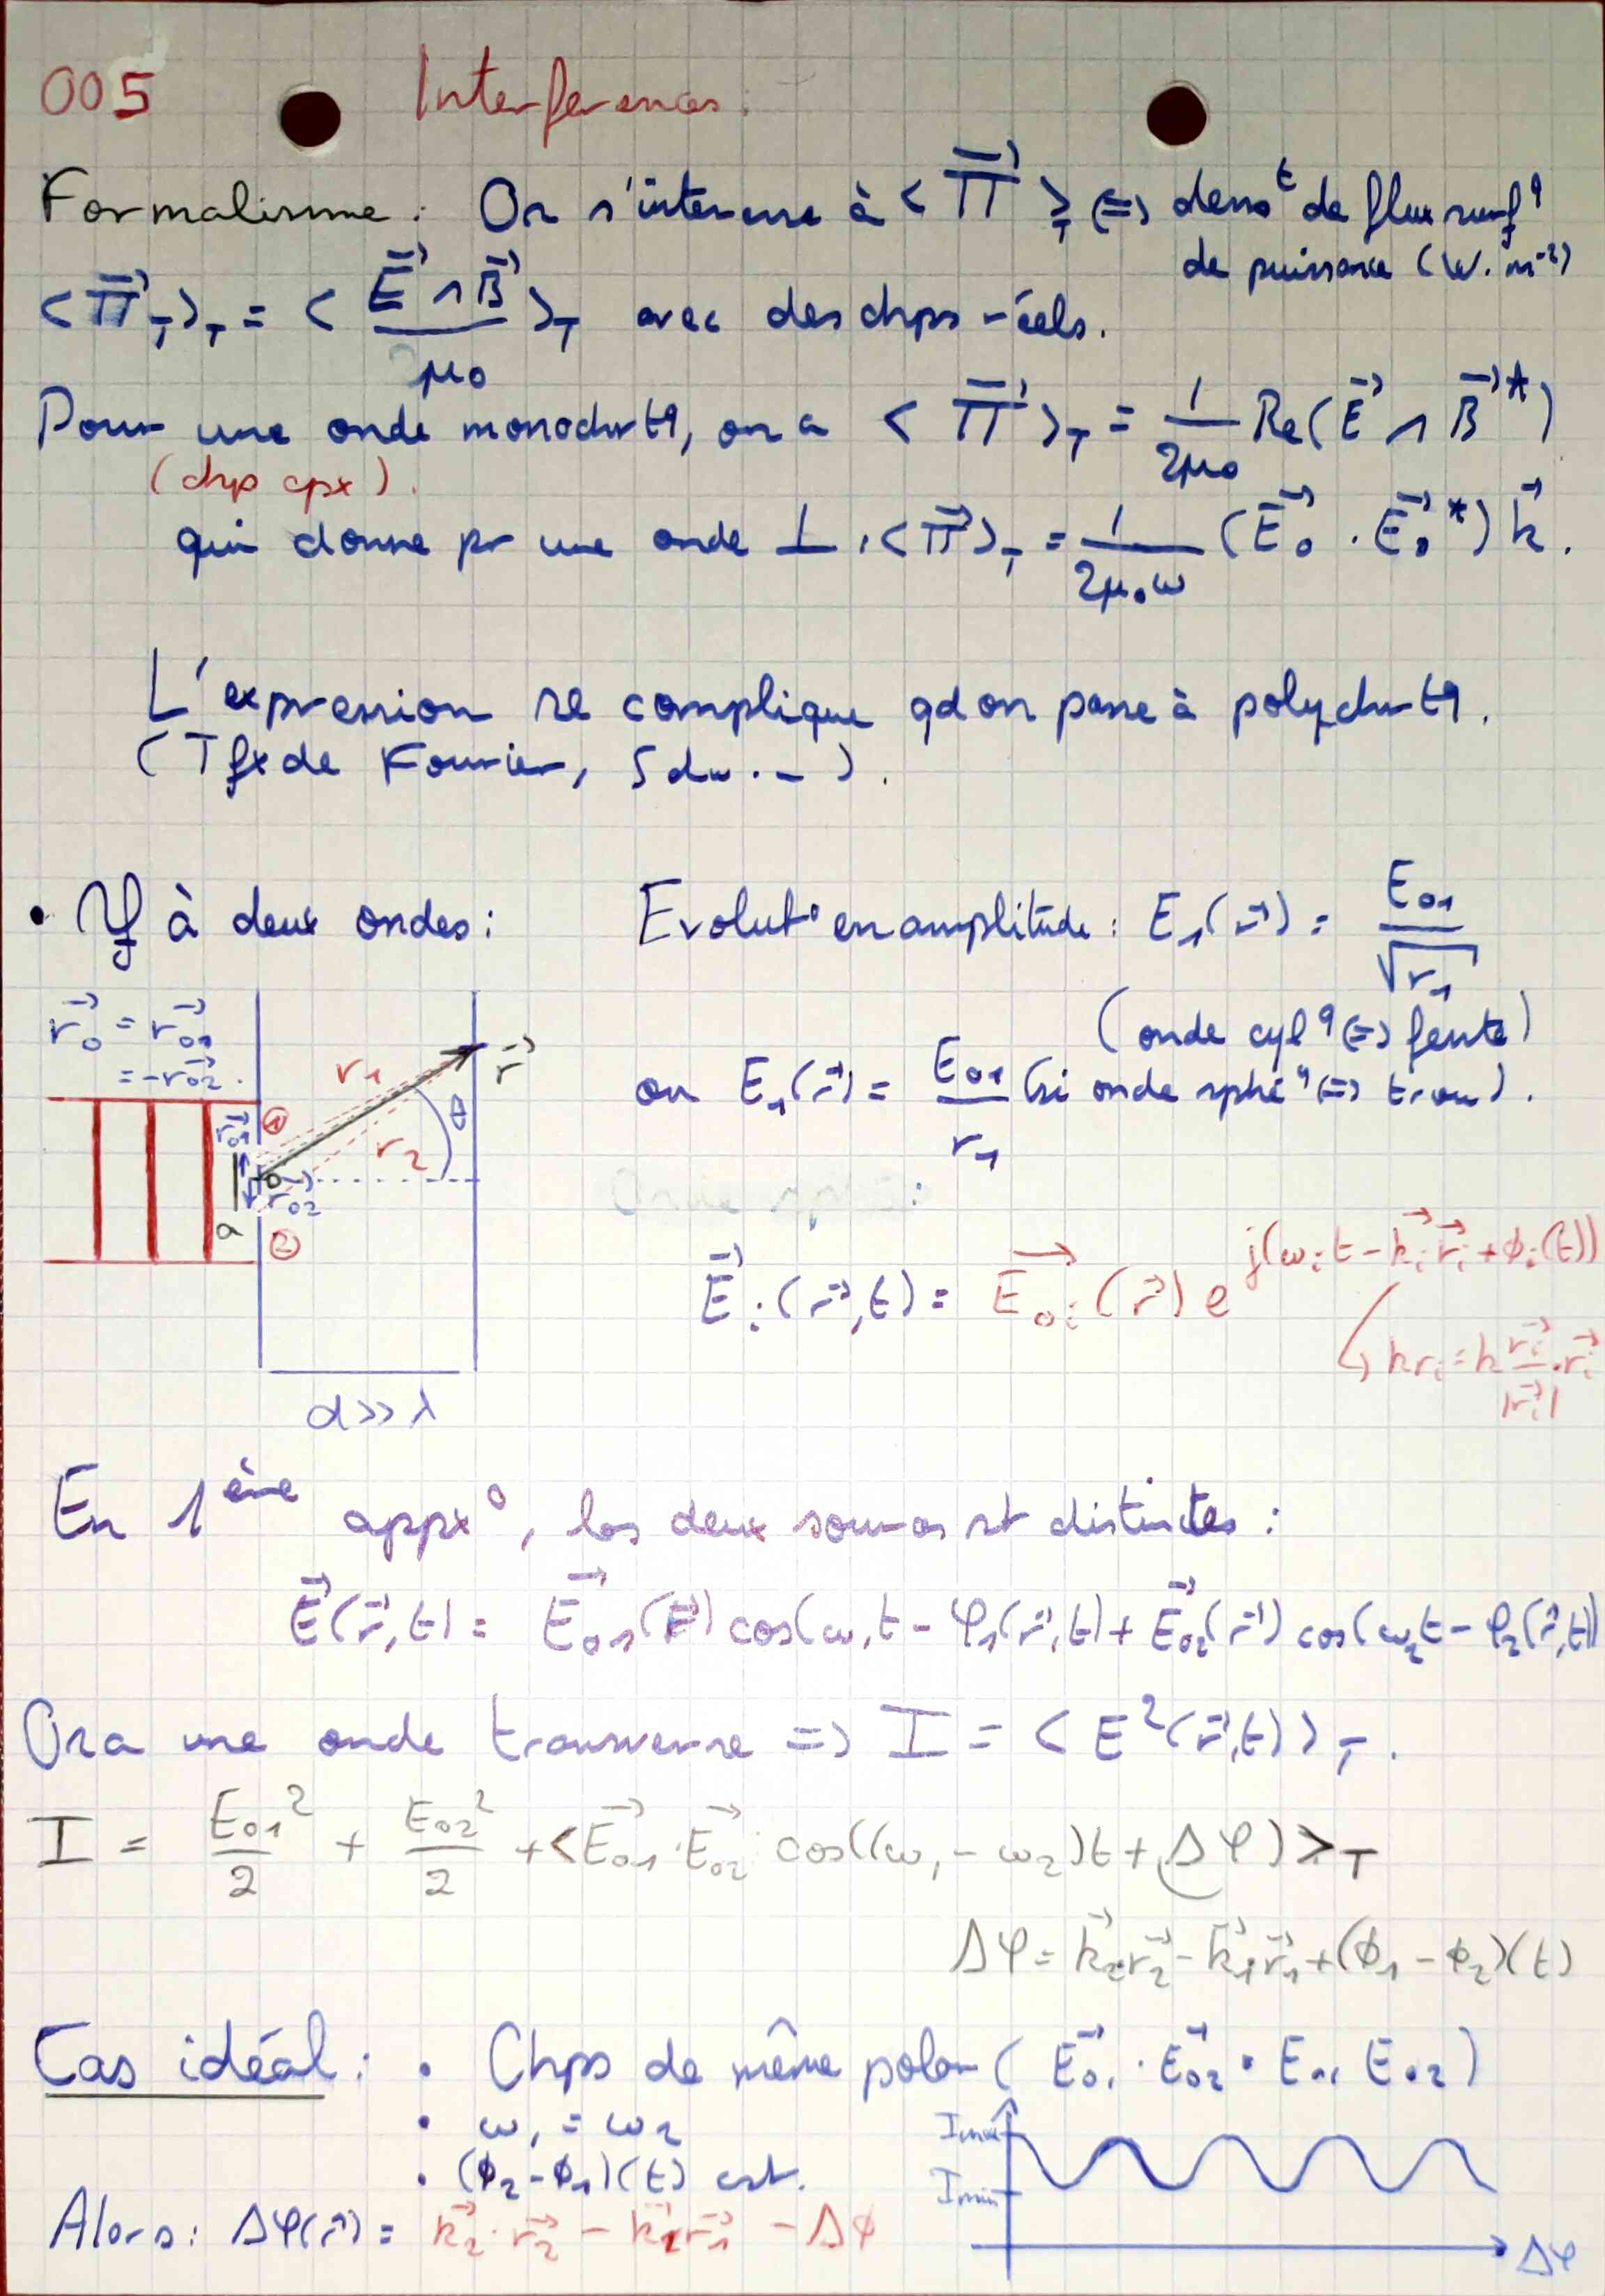 005 Interferences.
Formalisme : On s'interesse à <Π⃗>_T (=) dens^t de flux surf^q
de puissance (W.m⁻²)
<Π⃗_T>_T = < E⃗ ∧ B⃗ / μ₀ >_T avec des chps réels.
Pour une onde monochrtq, on a <Π⃗>_T = 1/2μ₀ Re(E⃗ ∧ B⃗*)
(chp cpx).
qui donne pr une onde ⊥ , <Π⃗>_T = 1/2μ₀ω (E⃗₀ . E⃗₀*) k⃗.
L'expression se complique qd on passe à polychrtq.
(Tfx de Fourier, ∫dω...).
• If à deux ondes : Evolut° en amplitude : E₁(r⃗) = E₀₁/√r₁
(onde cyl^q (=) fente)
ou E₁(r⃗) = E₀₁/r₁ (si onde sphé^q (=) trou).
r⃗₀ = r⃗₀₁
= -r⃗₀₂.
r₁
r⃗
①
r⃗₀₁
θ
r₂
O
r⃗₀₂
a
②
E⃗ᵢ(r⃗,t) = E⃗₀ᵢ(r⃗) e^j(ωᵢt - k⃗ᵢr⃗ᵢ + ϕᵢ(t))
↳ krᵢ = k r⃗ᵢ/|r⃗ᵢ| . r⃗ᵢ
d >> λ
En 1ère appx°, les deux sources st distinctes :
E⃗(r⃗,t) = E⃗₀₁(r⃗) cos(ω₁t - φ₁(r⃗,t) + E⃗₀₂(r⃗) cos(ω₂t - φ₂(r⃗,t))
On a une onde transverse => I = <E²(r⃗,t)>_T.
I = E₀₁²/2 + E₀₂²/2 + <E⃗₀₁.E⃗₀₂ cos((ω₁ - ω₂)t + Δφ)>_T
Δφ = k⃗₂.r⃗₂ - k⃗₁.r⃗₁ + (ϕ₁ - ϕ₂)(t)
Cas idéal : • Chps de même polar (E⃗₀₁ . E⃗₀₂ = E₀₁ E₀₂)
• ω₁ = ω₂
• (ϕ₂ - ϕ₁)(t) cst.
Imax
Imin
Δφ
Alors : Δφ(r⃗) = k⃗₂.r⃗₂ - k⃗₁r⃗₁ - Δϕ